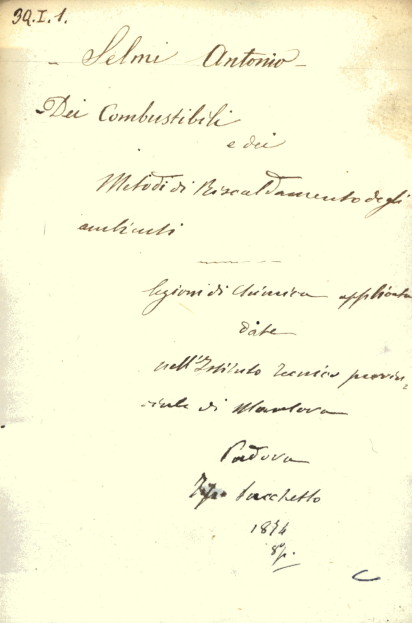 39.I.1.
- Selmi Antonio -
Dei Combustibili
e dei
Metodi di Riscaldamento degli
ambienti
lezioni di chimica applicata
date
nell'Istituto Tecnico provin=
ciale di Mantova
Padova
Tip. Sacchetto
1874
8º.